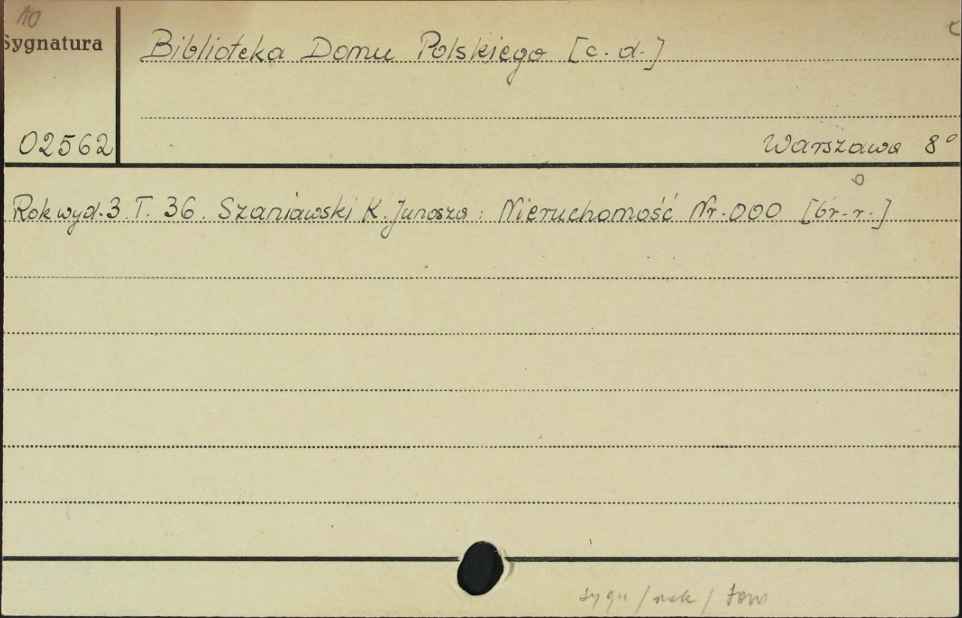 10
Sygnatura
Biblioteka Domu Polskiego [c. d.]
02562
Warszawa 8°
Rok wyd. 3 T. 36. Szaniawski K. Junosza: Nieruchomość Nr. 000 [br. r.]
sygn / rok / tom